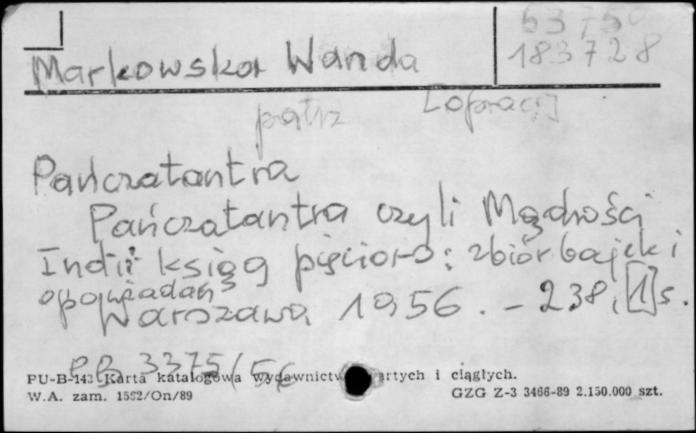 5375
183728
Markowska Wanda
patrz [oprac.]
Pańczatantra
Pańczatantra czyli Mądrości
Indii ksiąg pięcioro: zbiór bajek i
opowiadań
Warszawa 1956. - 238, [1] s.
PB 3375/56
PU-B-143 Karta katalogowa wydawnictw zwartych i ciągłych.
W.A. zam. 1552/On/89 GZG Z-3 3466-89 2.150.000 szt.